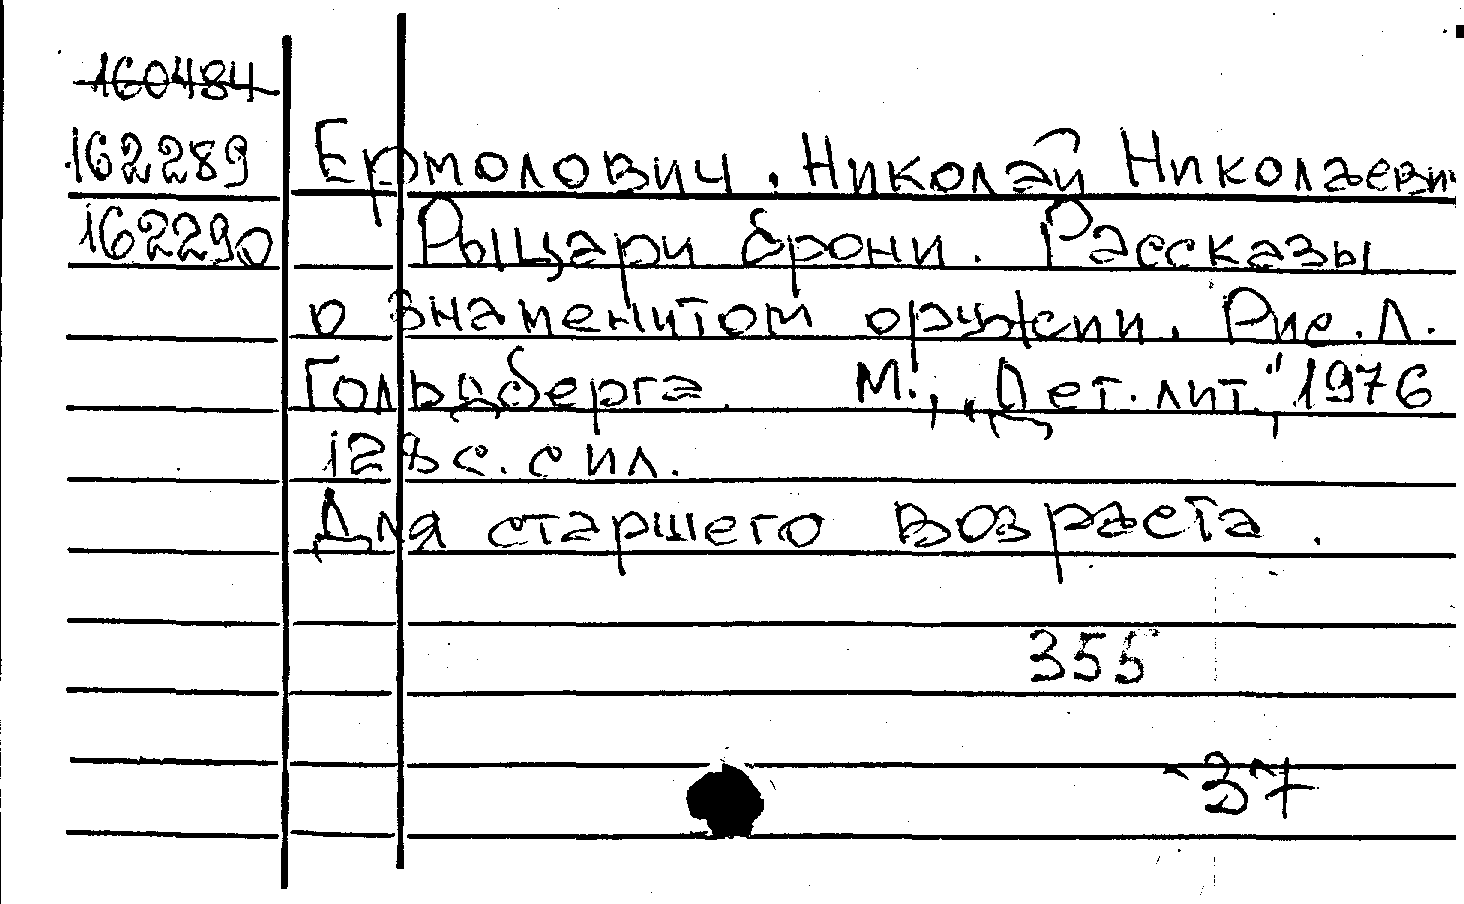 160484
162289 Ермолович. Николай Николаеви
162290 Рыцари брони. Рассказы
о знаменитом оружии. Рис. Л.
Гольдберга. М., „Дет. лит.", 1976
128 с. с ил.
Для старшего возраста.
355
37